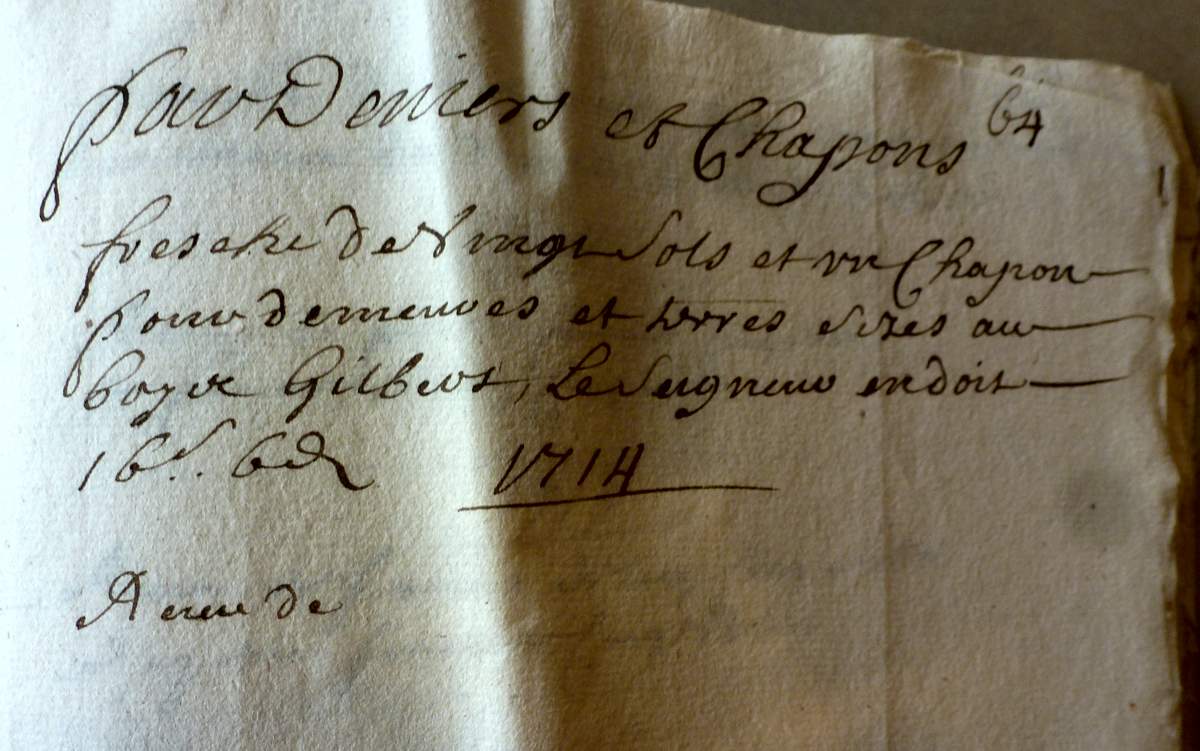 Par Deniers et Chapons 64
fresche de Vingt Sols et un Chapon
pour demeures et terres sizes au
Gilbert, Le Seigneur en doit
16s. 6d 1714
de